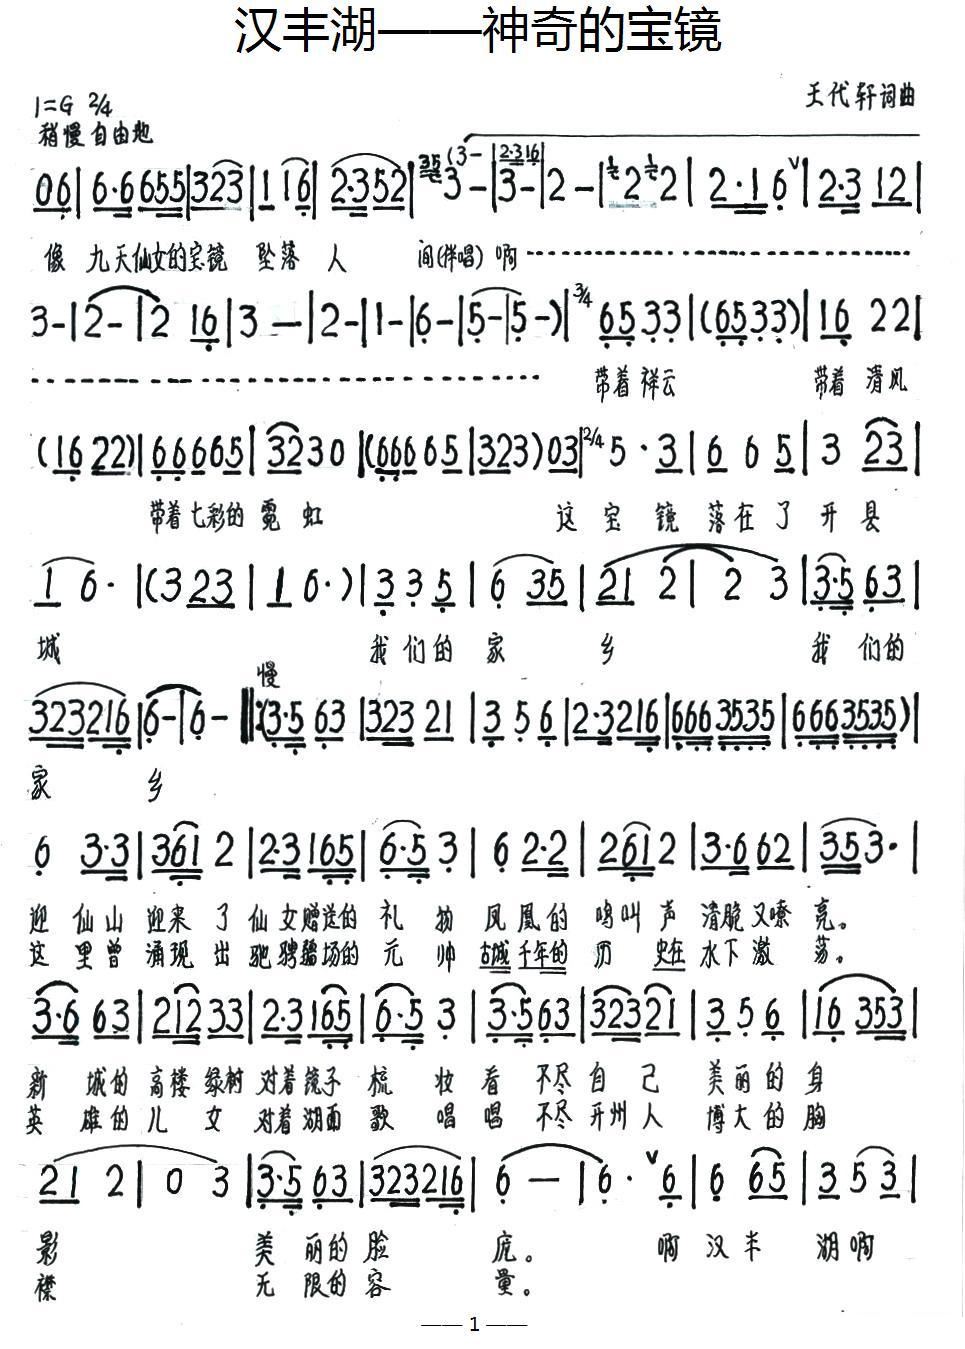 汉丰湖——神奇的宝镜
1=G 2/4
王代轩词曲
稍慢 自由地
06|6·6 655|323|1 16|2·352|35 3-|3-|2-|2 2|2·16|2·3 12|
像 九天仙女的宝镜 坠落 人 间(伴唱) 啊
3-|2-|2 16|3—|2-|1-|6-|5-|5-)|3/4 6533|(6533)|16 22|
带着 祥云 带着 清风
(16 22)|66665|3230|(66665|323)03|2/4 5·3|6 6 5|3 23|
带着七彩的 霓 虹 这 宝 镜 落在了 开 县
1 6·|(3 23|1 6·)|3 3 5|6 35|21 2|2 3|3·5 63|
城 我 们的 家 乡 我 们的
慢
323216|6-|6-‖:(3·5 63|323 21|3 5 6|2·3216|6663535|6663535)|
家 乡
6 3·3|361 2|2·3165|6·5 3|6 2·2|261 2|3·6 62|353·|
迎 仙山 迎来 了 仙 女赠送的 礼 物 凤 凰的 鸣叫 声 清脆又嘹 亮。
这 里曾 涌现 出 驰骋疆场的 元 帅 古城千年的 历 史在 水下激 荡。
3·6 63|212 33|2·3165|6·5 3|3·563|32321|3 5 6|16 353|
新 城的 高楼 绿树 对着镜子 梳 妆 看 不尽 自 己 美 丽 的 身
英 雄的 儿 女 对着湖面 歌 唱 唱 不尽 开州 人 博 大 的 胸
21 2|0 3|3·5 63|323216|6—|6·6|6 65|3 53|
影 美 丽的 脸 庞。 啊 汉 丰 湖 啊
襟 无 限的 容 量。
—— 1 ——